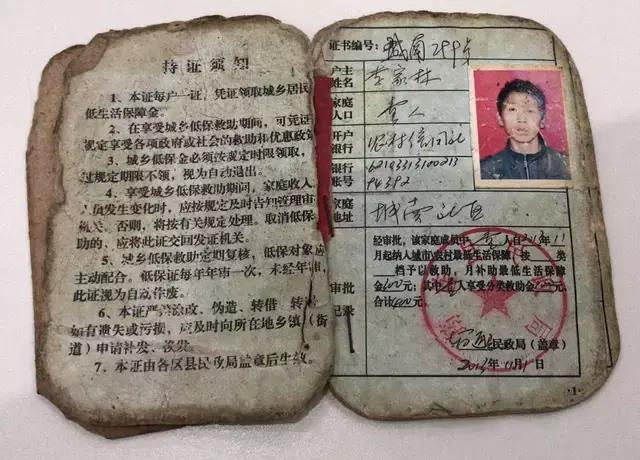 持证须知
1、本证每户一证，凭证领取城乡居民
低生活保障金。
2、在享受城乡低保救助期间，可凭证
规定享受各项政府或社会的救助和优惠政
3、城乡低保金必须按规定时限领取，
过规定期限不领，视为自动退出。
4、享受城乡低保救助期间，家庭收入
人员发生变化时，应按规定及时告知管理审
机关。否则，将按有关规定处理。取消低保
助的，应将此证交回发证机关。
5、城乡低保救助定期复核，低保对象应
主动配合。低保证每半年审一次，未经年审，
此证视为自动作废。
6、本证严禁涂改、伪造、转借、转
如有遗失或污损，应及时向所在地乡镇（街
道）申请补发、换发。
7、本证由各区县民政局盖章后生效。
证书编号：
户主
姓名
李家林
家庭
人口
壹人
开户
银行
银行
账号
家庭
地址
审批
记录
经审批，该家庭成员中 壹 人自 年11
月起纳入城市/农村最低生活保障，按 类
档予以救助，月补助最低生活保障
金400元；其中 人享受分类救助金 元，
合计400元。
民政局（盖章）
年11月1日
·1·